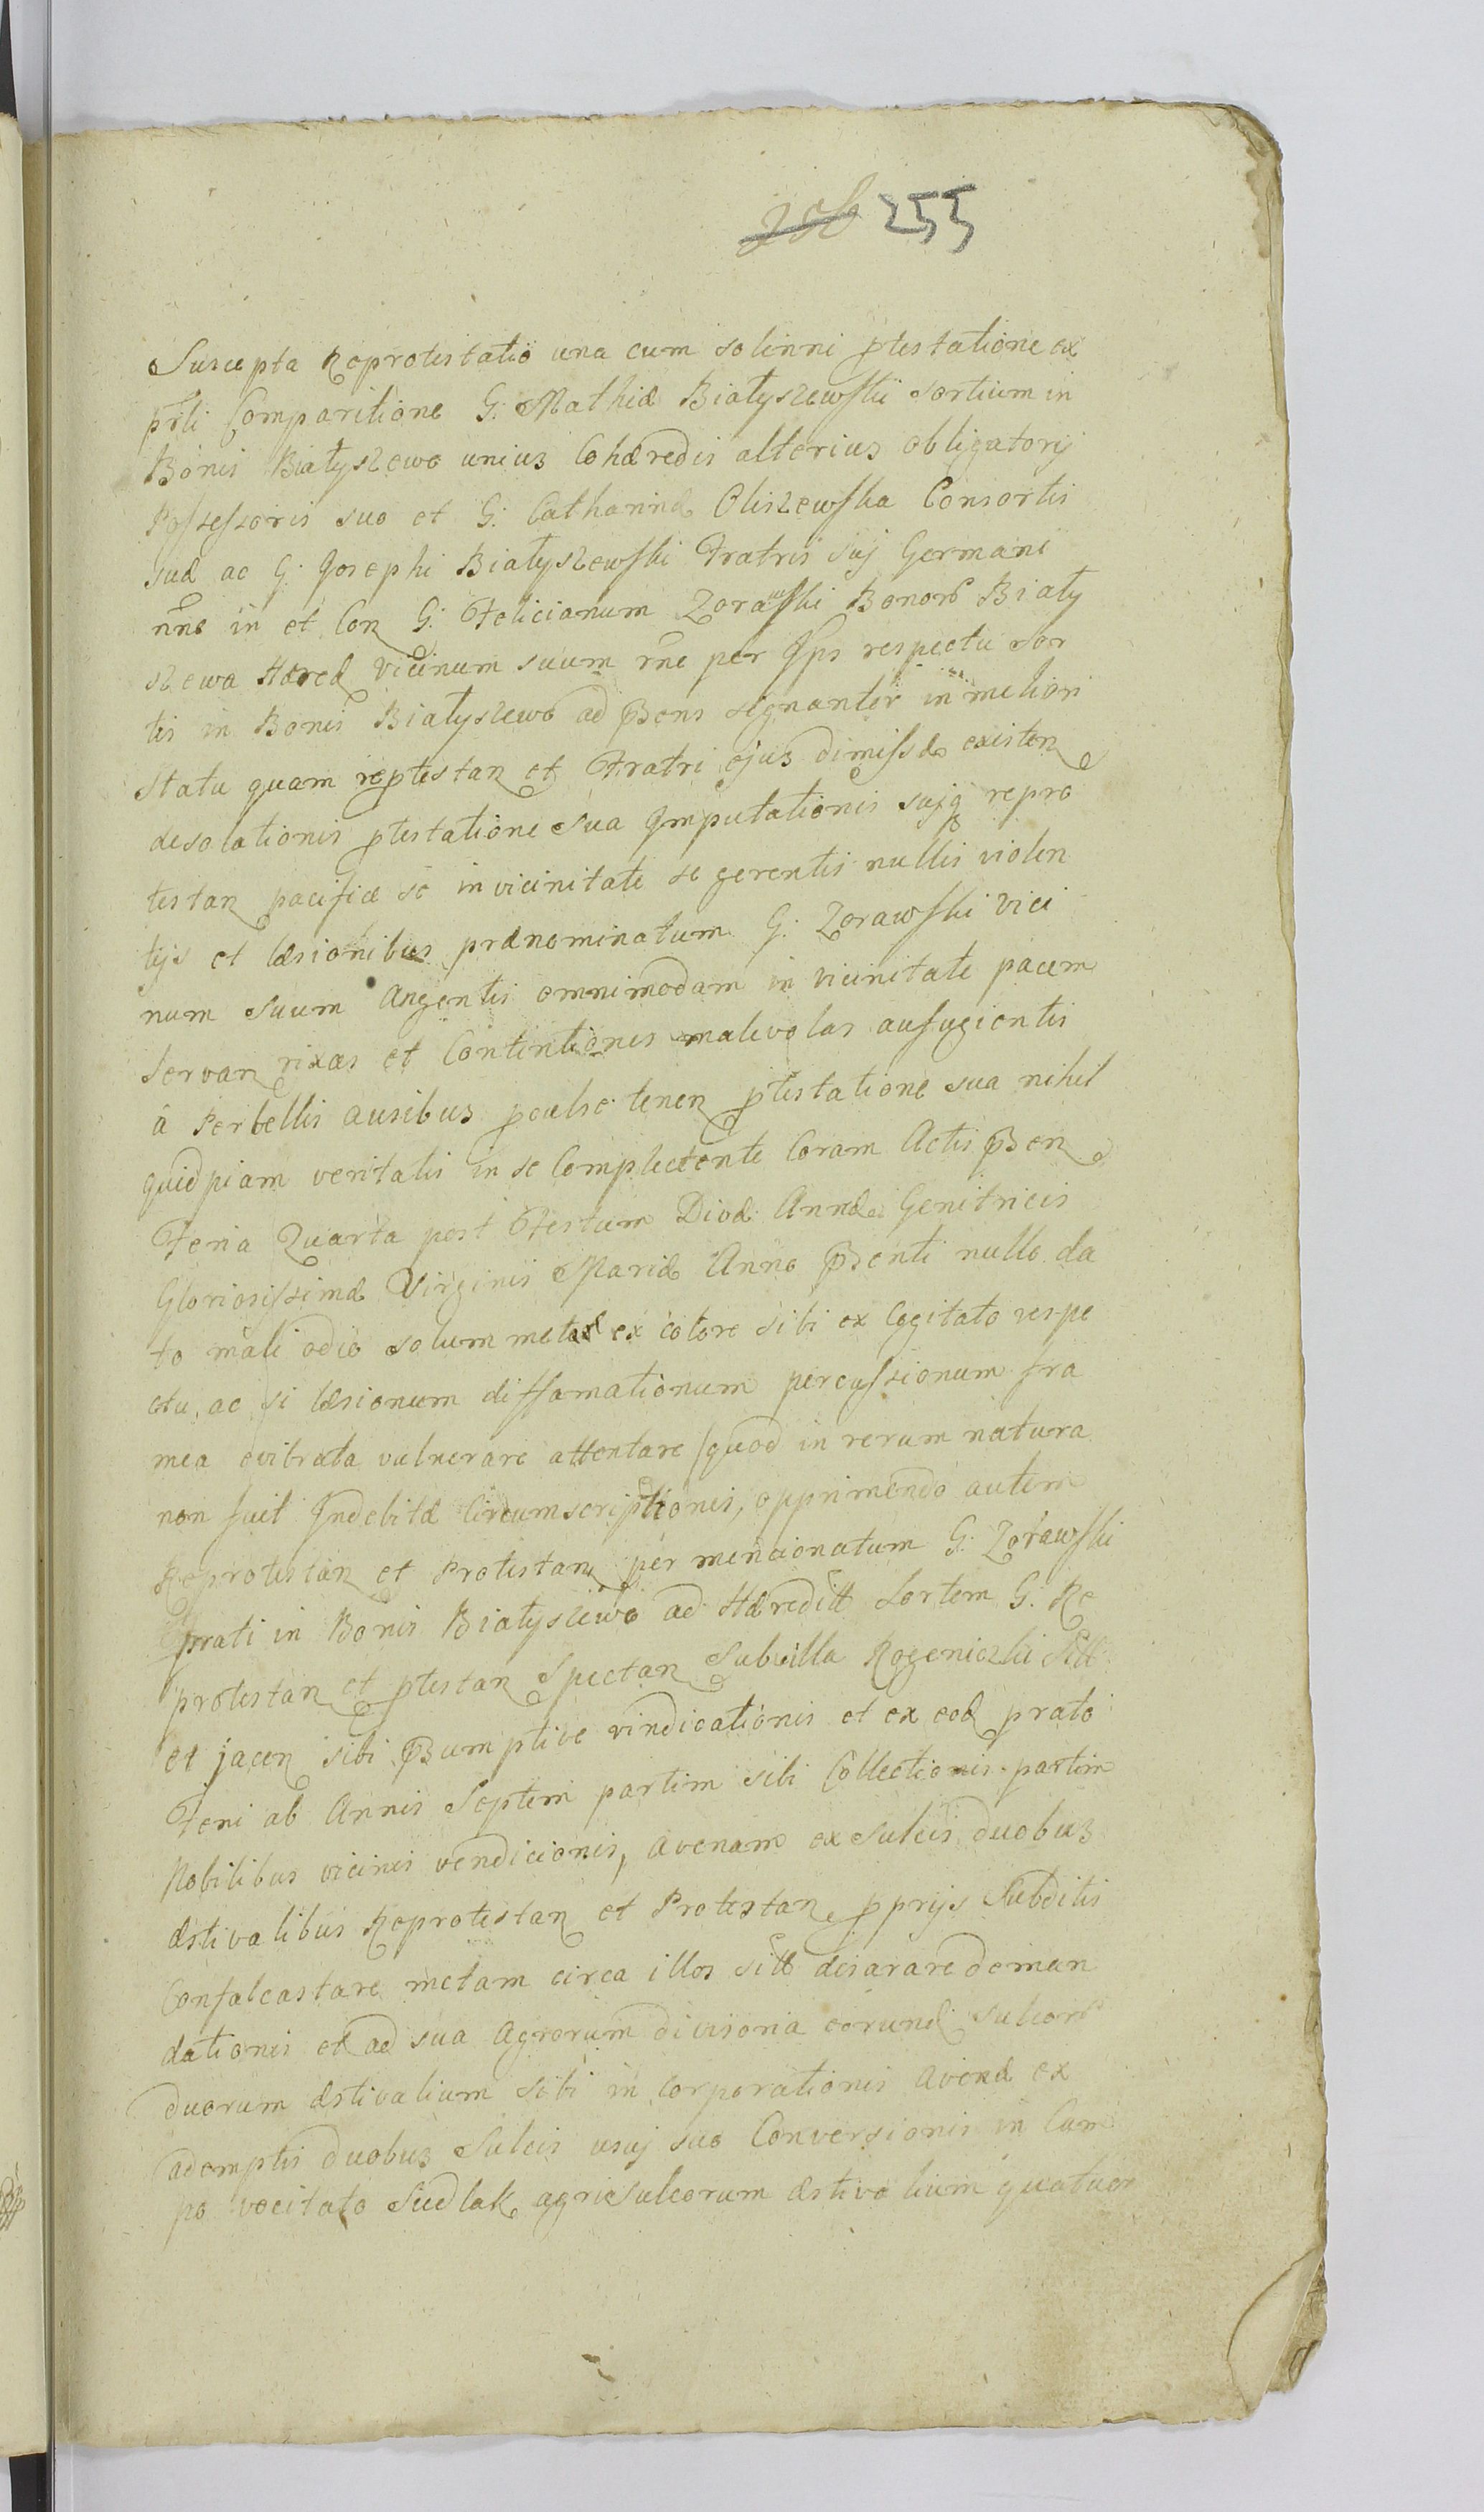 255
Suscepta Reprotestatio una cum solenni ptestatione ex
prli Comparitione G: Mathiæ Białyszewski sortium in
Bonis Białyszewo unius Cohæredis alterius obligatorij
Possessoris suo et G: Catharinæ Oliszewska Consortis
suæ ac G: Josephi Białyszewski Fratris suj Germani
nne in et Con G: Felicianum Zorawski Bonor Biały
szewa Hæred vicinum suum rne per Ips respectu sor
tis in Bonis Białyszewo ad Psens signanter in meliori
statu quam reptestan et Fratri ejus dimissæ existen
desolationis ptestatione sua Imputationis sujq repro
testan pacifice se in vicinitate se gerentis nullis violen
tijs et læsionibus prænominatum G: Zorawski vici
num suum Angentis omnimodam in vicinitate pacem
servan rixas et Contentiones malevolas aufugientis
â Perbellis ausibus pculse tenen ptestatione sua nihil
quidpiam veritatis in se Complectente Coram Actis Psen
Feria Quarta post Festum Divæ Annæ Genitricis
Gloriosissimæ Virginis Mariæ Anno Psenti nullo da
to mali odio solum ex colore sibi ex Cogitato respe
ctu, ac si læsionum diffamationum percussionum fra
mea evibrata vulnerare attentare /quod in rerum natura
non fuit Indebitæ Circumscriptionis, opprimendo autem
Reprotestan et Protestan per mencionatum G: Zorawski
prati in Bonis Białyszewo ad Hæreditt Sortem G: Re
protestan et ptestan Spectan Subvilla Rogeniczki Sitt
et jacen sibi Psumptive vindicationis et ex eod prato
Feni ab Annis Septem partim sibi Collectionis partim
Nobilibus vicinis vendicionis, Avenam ex Sulcis duobus
æstivalibus Reprotestan et Protestan pprijs Subditis
Confalcastare metam circa illos sitt desarare deman
dationis et ad sua Agrorum divisoria eorund Sulcor
duorum æstivalium sibi in Corporationis Avenæ ex
ademptis duobus Sulcis usuj suo Conversionis in Cam
po vocitato Siedlak agri Sulcorum æstivalium quatuor